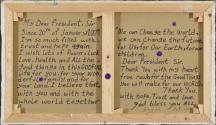 My Dear President, Sir
Since 20th of January 2009
I'm so much filled with
trust and hope again.
I wish lots of Power, Luck
Love, Health and All the
Good things in this
Life for you, for your
family and for
your Land. I believe that
with you and with the
whole world together
We can Change the World,
we can Change the future
for Life for Our Earth for our
children.
Dear President Sir.
Thank You with my heart
from now for the Good Things
you will make for our world.
Thank You.
with hope, Trust and
god bless you All